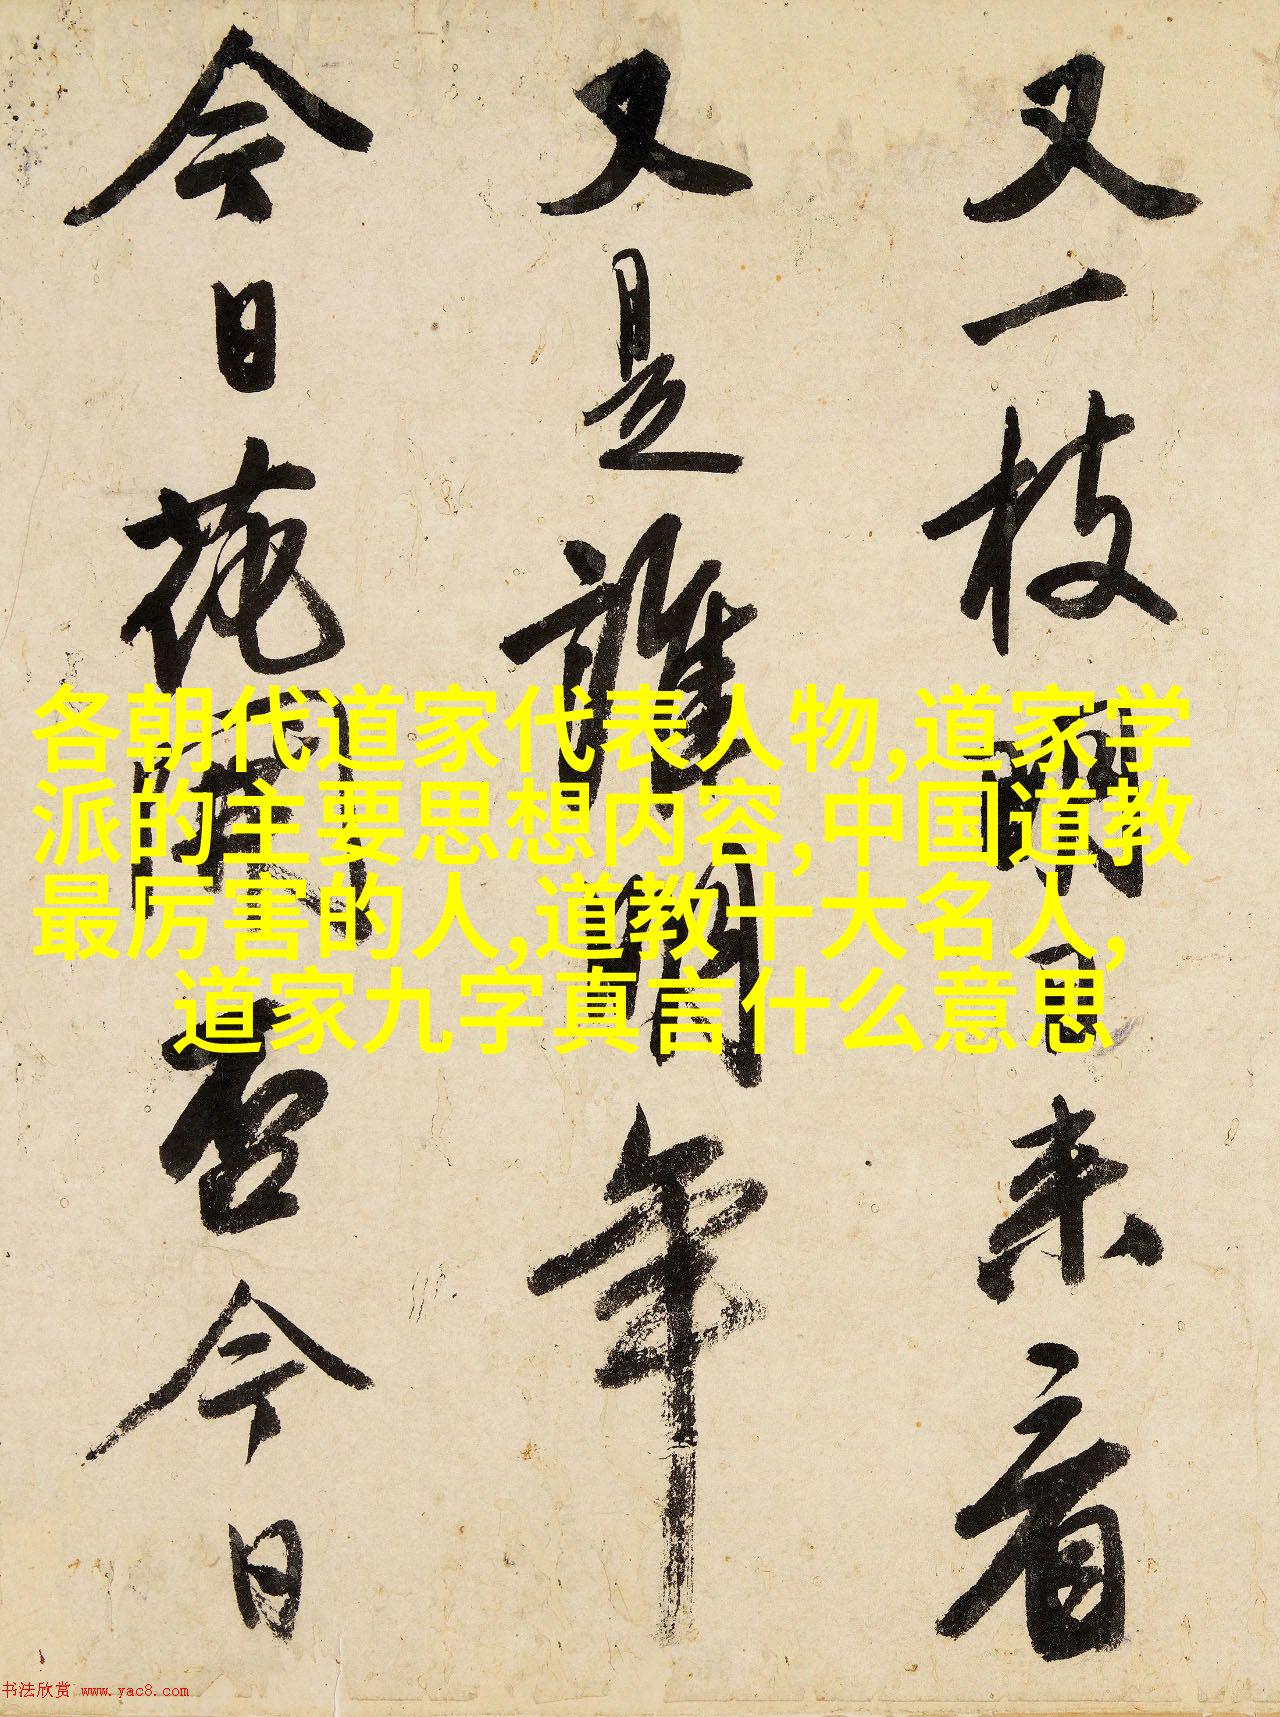 又一枝明日来看
又是誰明年
今日花開否今日
各朝代道家代表人物,道家学
派的主要思想内容,中国道教
最厉害的人,道教十大名人,
道家九字真言什么意思
书法欣赏 www.yac8.com